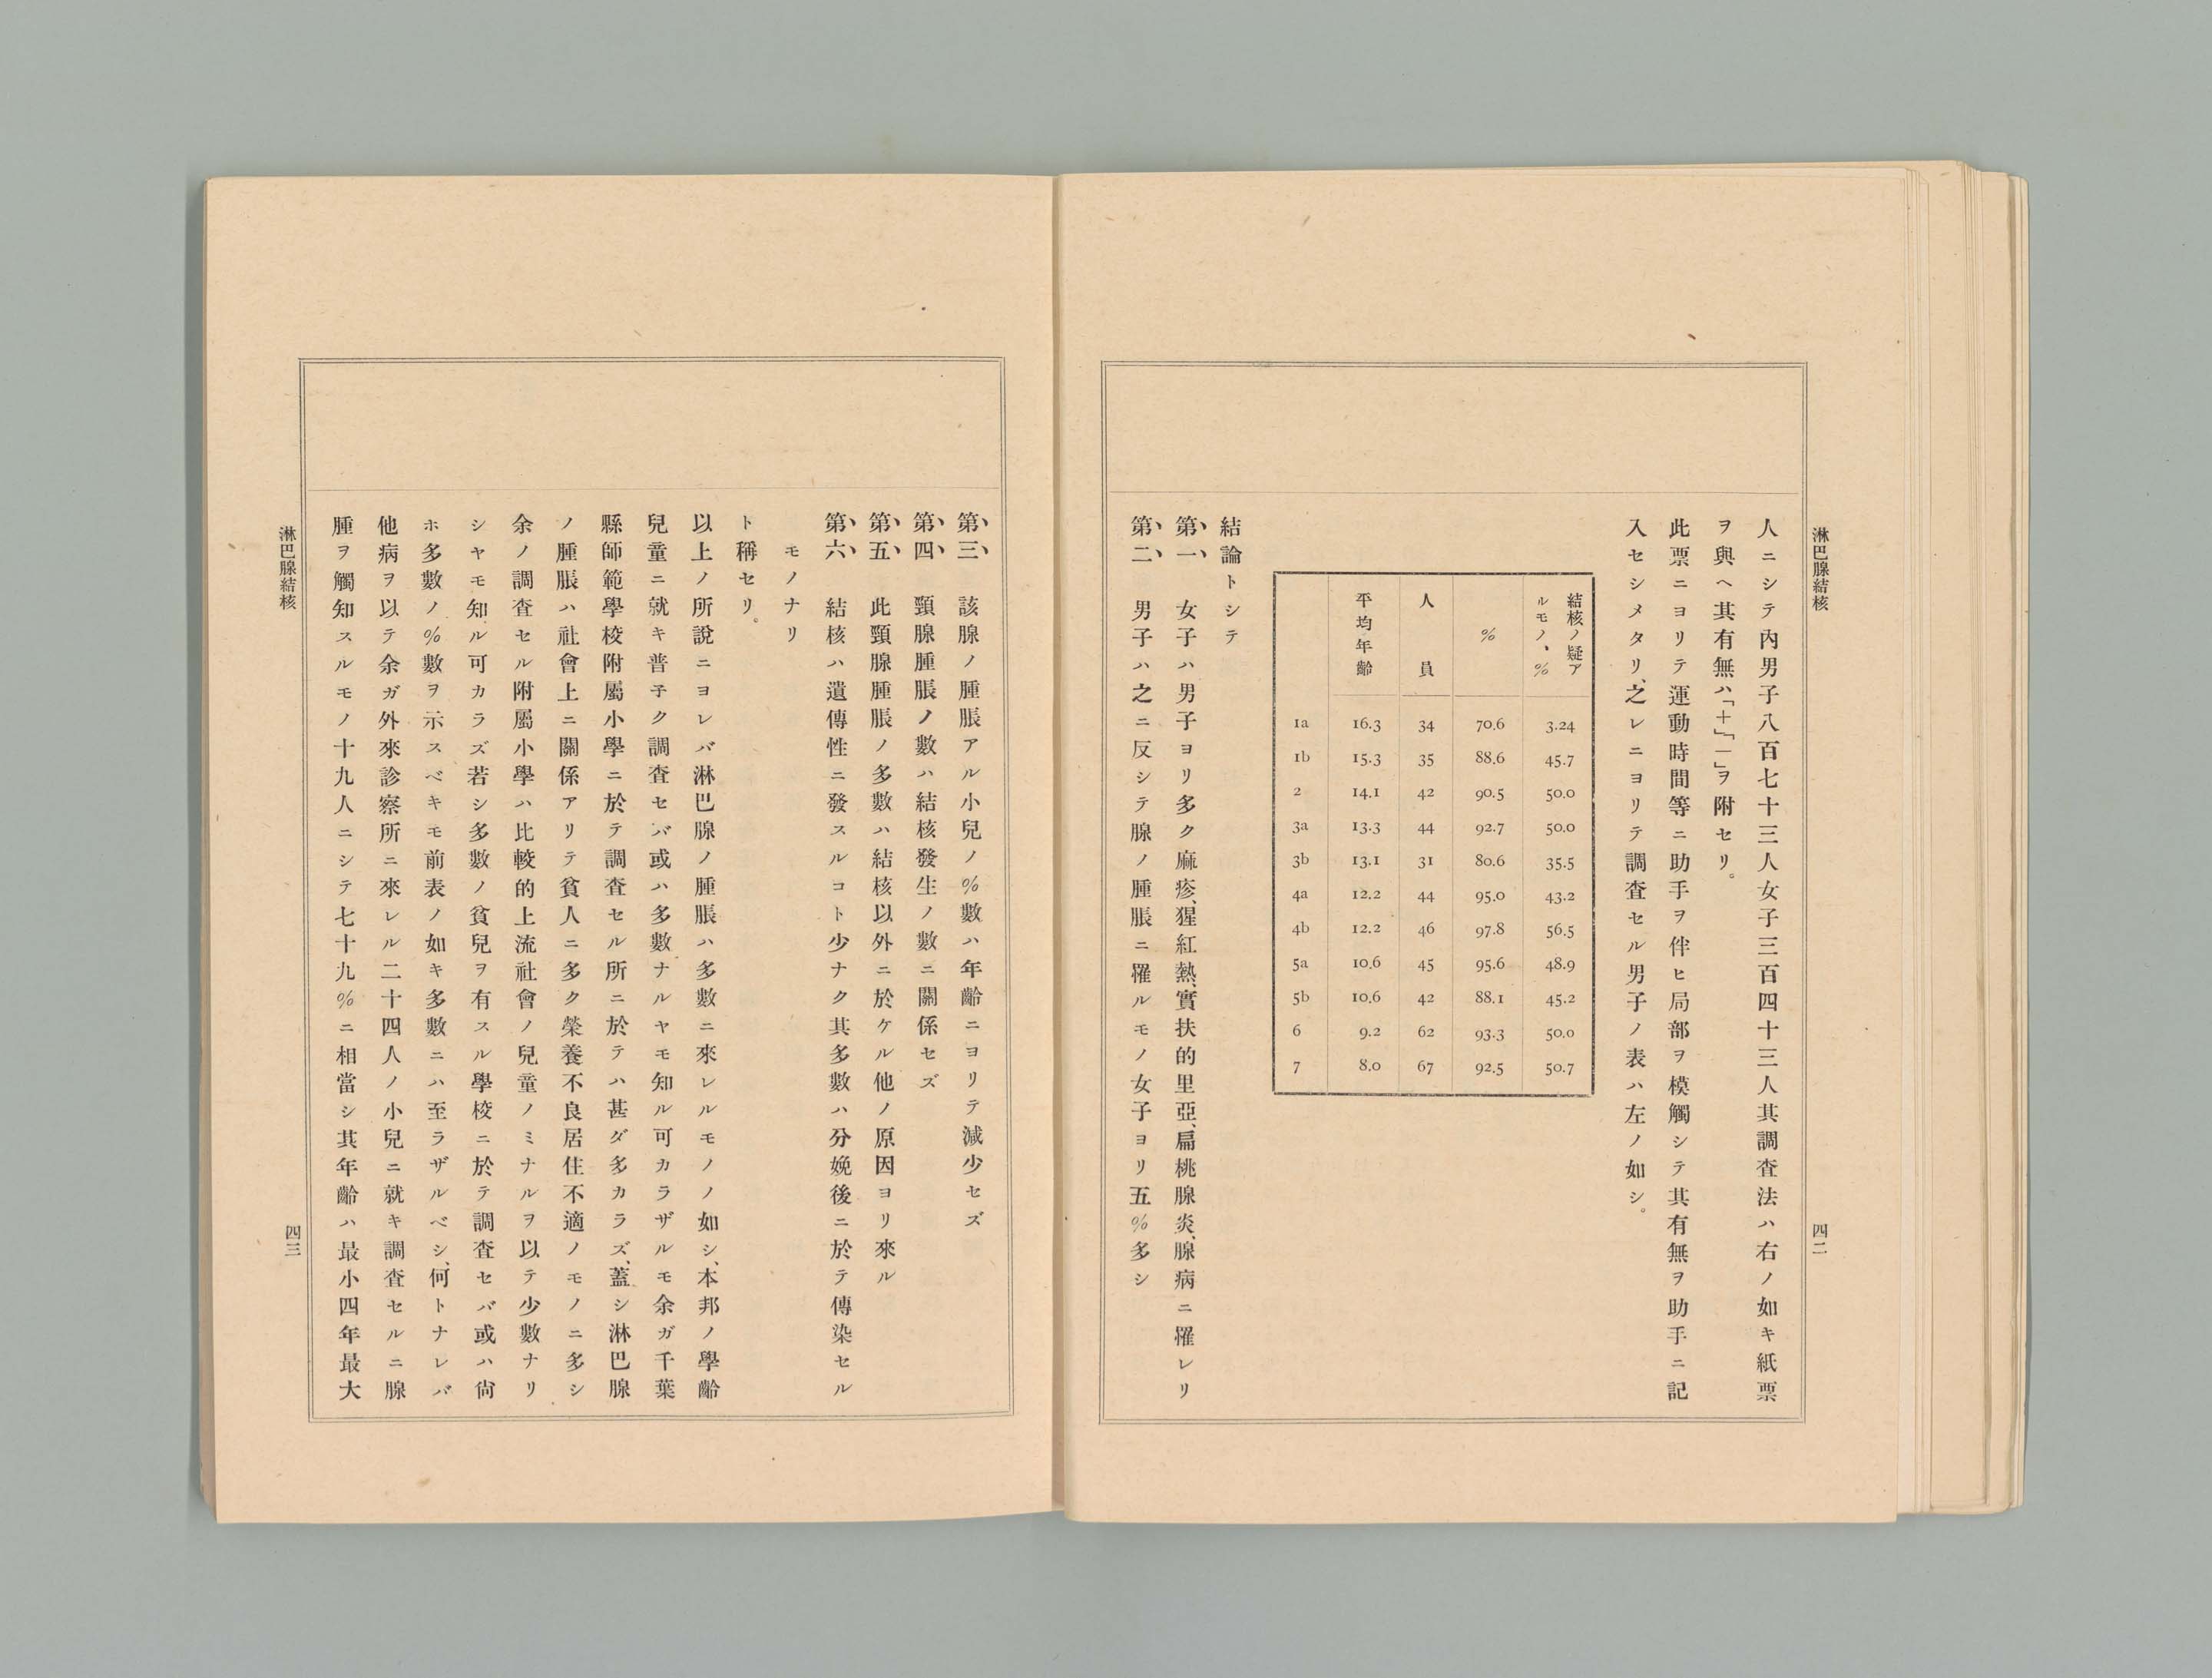 淋巴腺結核
四二
人ニシテ內男子八百七十三人女子三百四十三人其調査法ハ右ノ如キ紙票
ヲ與ヘ其有無ハ「＋」「－」ヲ附セリ。
此票ニヨリテ運動時間等ニ助手ヲ伴ヒ局部ヲ模觸シテ其有無ヲ助手ニ記
入セシメタリ、之レニヨリテ調査セル男子ノ表ハ左ノ如シ。
平均年齡 人員 % 結核ノ疑アルモノヽ%
1a 16.3 34 70.6 3.24
1b 15.3 35 88.6 45.7
2 14.1 42 90.5 50.0
3a 13.3 44 92.7 50.0
3b 13.1 31 80.6 35.5
4a 12.2 44 95.0 43.2
4b 12.2 46 97.8 56.5
5a 10.6 45 95.6 48.9
5b 10.6 42 88.1 45.2
6 9.2 62 93.3 50.0
7 8.0 67 92.5 50.7
結論トシテ
第一 女子ハ男子ヨリ多ク麻疹、猩紅熱、實扶的里亞、扁桃腺炎、腺病ニ罹レリ
第二 男子ハ之ニ反シテ腺ノ腫脹ニ罹ルモノ女子ヨリ五%多シ
第三 該腺ノ腫脹アル小兒ノ%數ハ年齡ニヨリテ減少セズ
第四 頸腺腫脹ノ數ハ結核發生ノ數ニ關係セズ
第五 此頸腺腫脹ノ多數ハ結核以外ニ於ケル他ノ原因ヨリ來ル
第六 結核ハ遺傳性ニ發スルコト少ナク其多數ハ分娩後ニ於テ傳染セル
モノナリ
ト稱セリ。
以上ノ所說ニヨレバ淋巴腺ノ腫脹ハ多數ニ來レルモノノ如シ、本邦ノ學齡
兒童ニ就キ普子ク調査セバ或ハ多數ナルヤモ知ル可カラザルモ余ガ千葉
縣師範學校附屬小學ニ於テ調査セル所ニ於テハ甚ダ多カラズ、蓋シ淋巴腺
ノ腫脹ハ社會上ニ關係アリテ貧人ニ多ク榮養不良居住不適ノモノニ多シ
余ノ調査セル附屬小學ハ比較的上流社會ノ兒童ノミナルヲ以テ少數ナリ
シヤモ知ル可カラズ若シ多數ノ貧兒ヲ有スル學校ニ於テ調査セバ或ハ尙
ホ多數ノ%數ヲ示スベキモ前表ノ如キ多數ニハ至ラザルベシ、何トナレバ
他病ヲ以テ余ガ外來診察所ニ來レル二十四人ノ小兒ニ就キ調査セルニ腺
腫ヲ觸知スルモノ十九人ニシテ七十九%ニ相當シ其年齡ハ最小四年最大
淋巴腺結核
四三